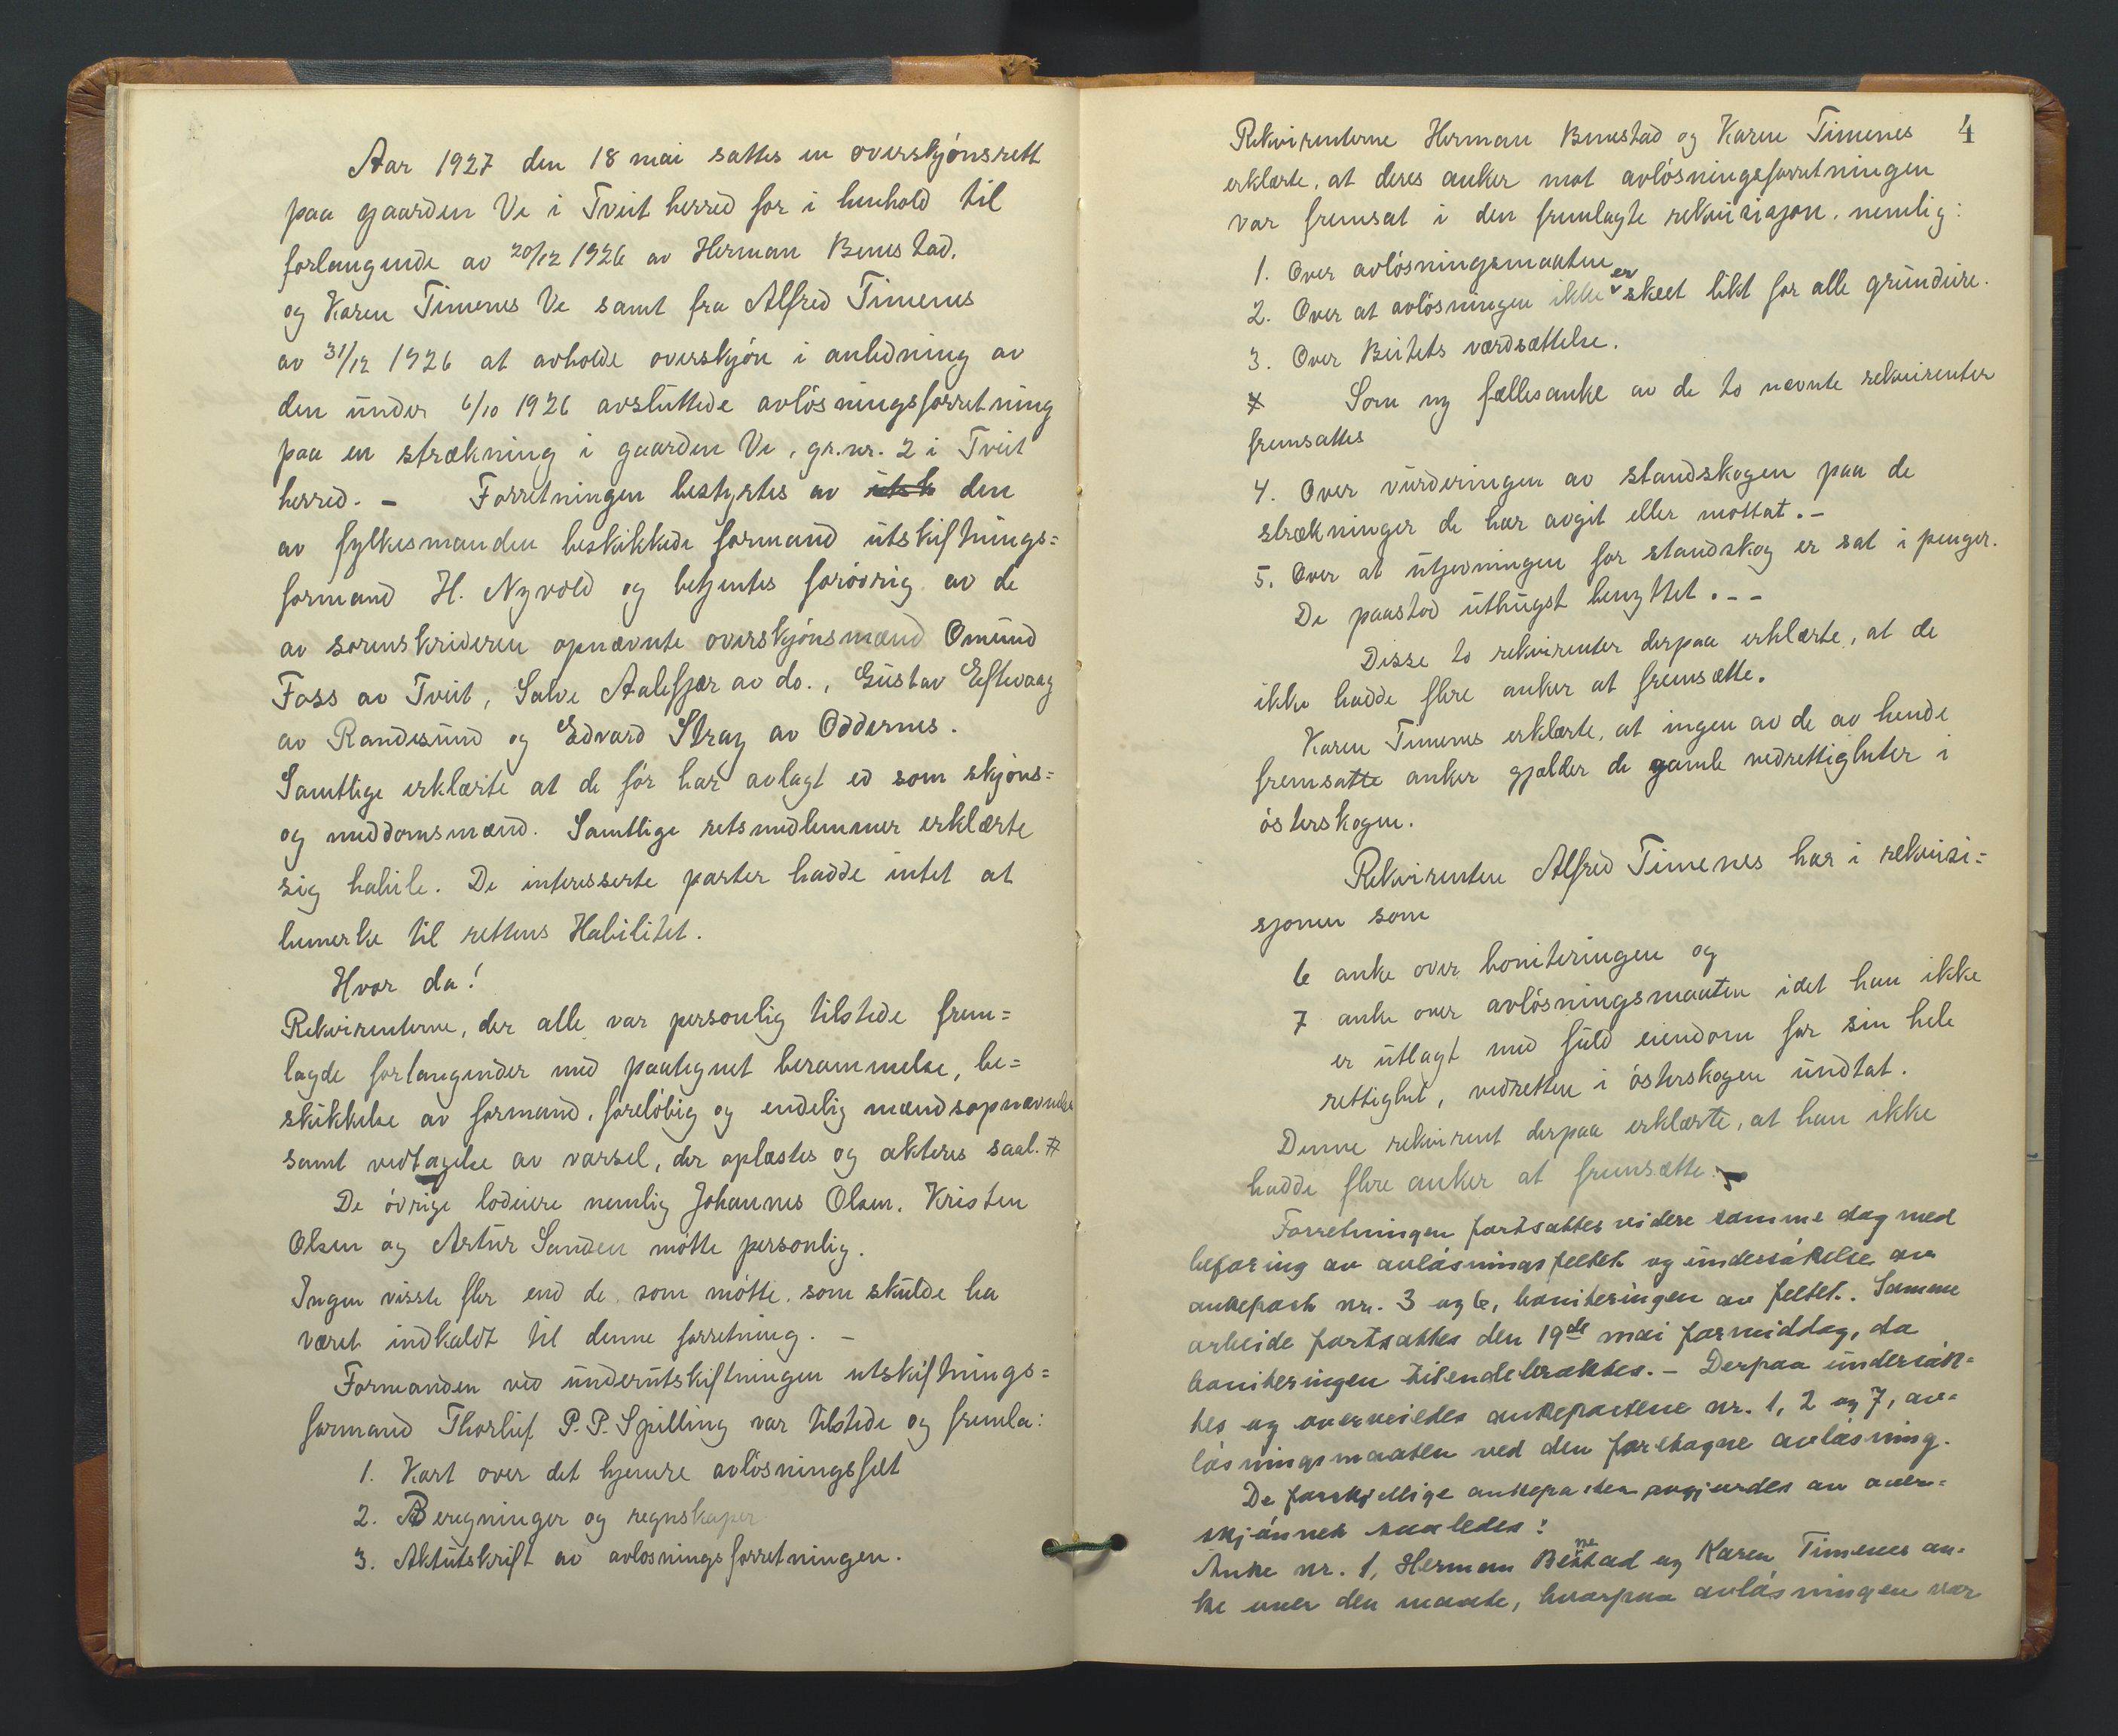 Aar 1927 den 18 mai sattes en overskjønsrett
paa gaarden Ve i Tveit herred for i henhold til
forlangende av 20/12 1926 av Herman Benestad,
og Karen Timenes Ve samt fra Alfred Timenes
av 31/12 1926 at avholde overskjøn i anledning av
den under 6/10 1926 avsluttede avløsningsforretning
paa en strækning i gaarden Ve, gr.nr. 2 i Tveit
herred. - Forretningen bestyrtes av den
av fylkesmanden beskikkede formand utskiftnings=
formand H. Nyvold og betjentes forøvrig av de
av sorenskriveren opnævnte overskjønsmænd Omund
Foss av Tveit, Salve Aalefjær av do., Gustav Eftevaag
av Randesund og Edvard Stray av Oddernes.
Samtlige erklærte at de før har avlagt ed som skjøns=
og meddomsmænd. Samtlige retsmedlemmer erklærte
sig habile. De interesserte parter hadde intet at
bemerke til rettens Habilitet.
Hvor da!
Rekvirenterne, der alle var personlig tilstede frem=
lagde forlangender med paategnet berammelse, be=
skikkelse av formand, foreløbig og endelig mændsopnævnelse
samt vedtagelse av varsel, der oplæstes og akteres saal. #
De øvrige lodeiere nemlig Johannes Olsen, Kristen
Olsen og Artur Sanden møtte personlig.
Ingen visste fler end de som møtte, som skulde ha
været indkaldt til denne forretning. -
Formanden ved underutskiftningen utskiftnings=
formand Thorleif P. P. Spilling var tilstede og fremla:
1. Kart over det hjemre avløsningsfelt
2. Beregninger og regnskaper
3. Aktutskrift av avløsningsforretningen.
4
Rekvirenterne Herman Benestad og Karen Timenes
erklærte, at deres anker mot avløsningsforretningen
var fremsat i den fremlagte rekvisisjon, nemlig:
1. Over avløsningsmaaten
2. Over at avløsningen ikke er skeet likt for alle grundeiere.
3. Over Beitets værdsættelse.
Som ny fællesanke av de to nævnte rekvirenter
fremsattes
4. Over vurderingen av standskogen paa de
strækninger de har avgit eller mottat. -
5. Over at utjevningen for standskog er sat i penger.
De paastod uthugst benyttet. --
Disse to rekvirenter derpaa erklærte, at de
ikke hadde flere anker at fremsætte.
Karen Timenes erklærte, at ingen av de av hende
fremsatte anker gjælder de gamle vedrettigheter i
østerskogen.
Rekvirenten Alfred Timenes har i rekvisi=
sjonen som
6 anke over boniteringen og
7 anke over avløsningsmaaten idet han ikke
er utlagt med fuld eiendom for sin hele
rettighet, vedretten i østerskogen undtat.
Denne rekvirent derpaa erklærte, at han ikke
hadde flere anker at fremsætte.
Forretningen fortsattes videre samme dag med
befaring av avløsningsfeltet og undersøkelse av
ankepost nr. 3 og 6, boniteringen av feltet. Samme
arbeide fortsattes den 19de mai formiddag, da
boniteringen tilendebraktes. - Derpaa undersøk=
tes og overveiedes ankepostene nr. 1, 2 og 7, av=
løsningsmaaten ved den foretagne avløsning.
De forskjellige ankeposter avgjordes av over=
skjønnet saaledes:
Anke nr. 1, Herman Benestad og Karen Timenes an=
ke over den maate, hvorpaa avløsningen var